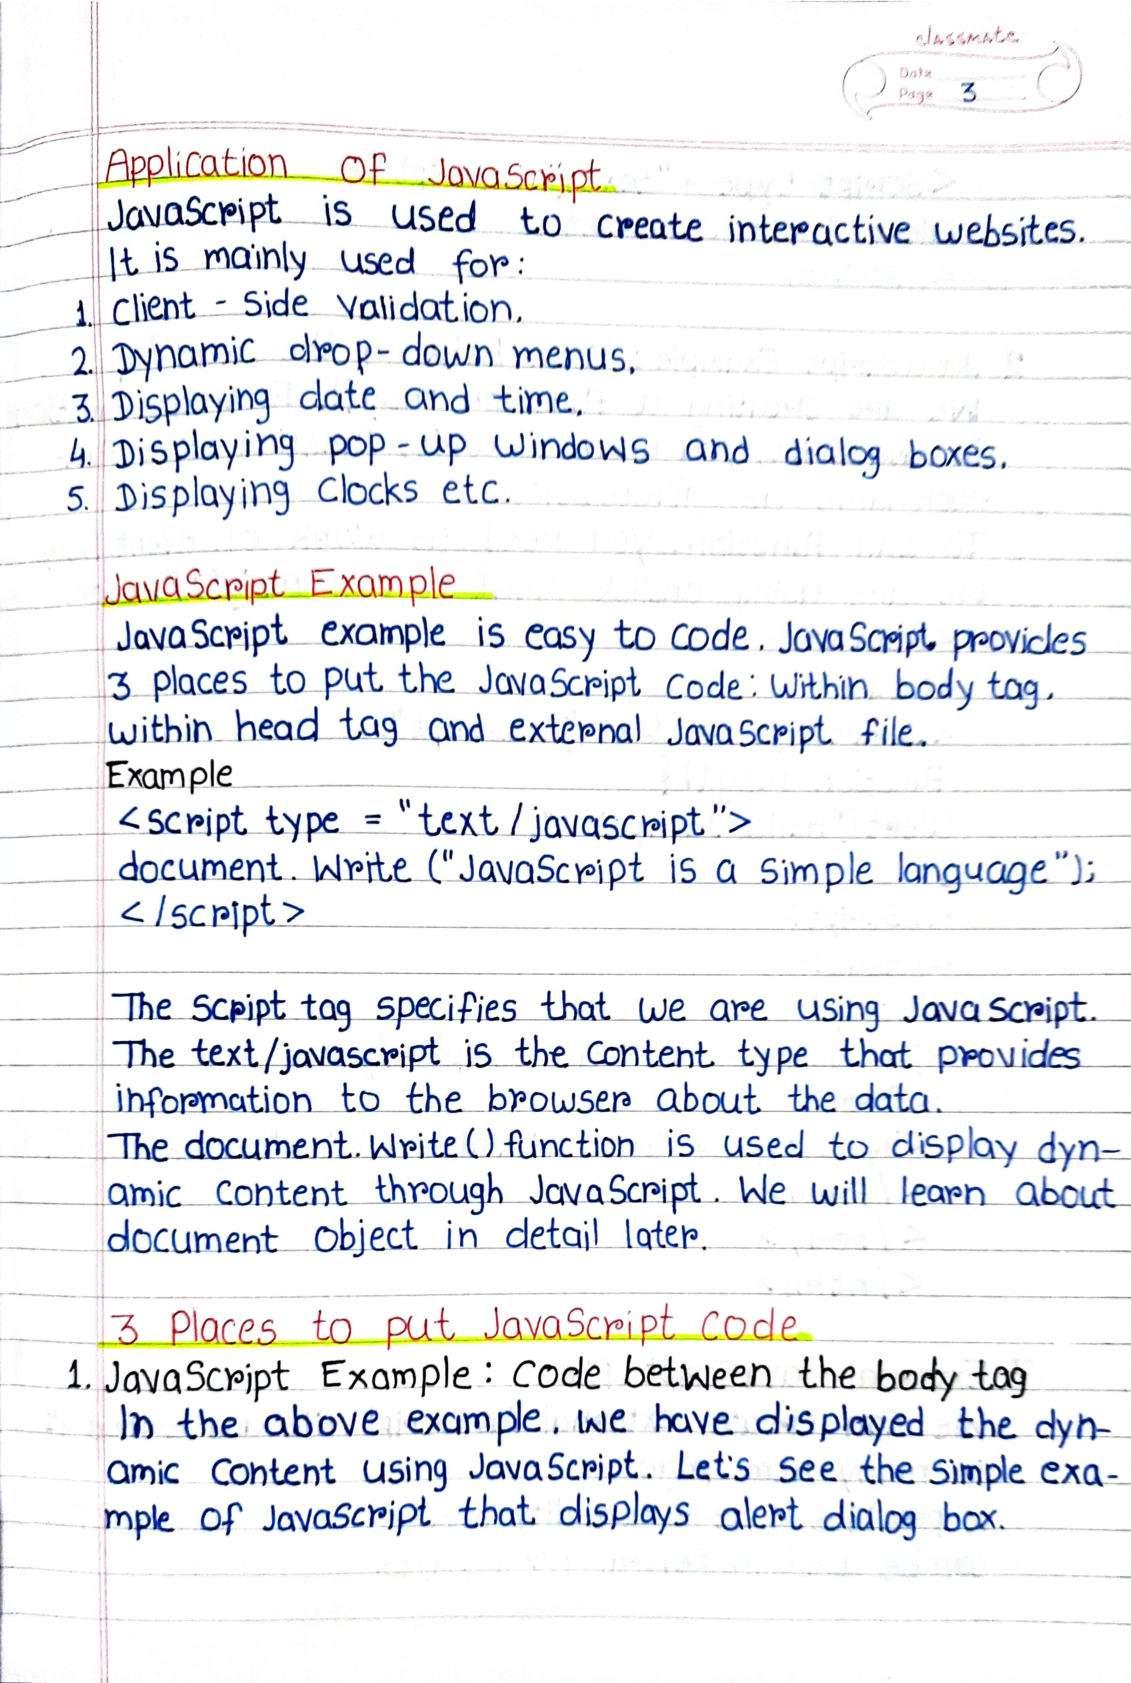 classmate
Date
Page 3
Application Of JavaScript
JavaScript is used to create interactive websites.
It is mainly used for:
1. Client - Side Validation.
2. Dynamic drop-down menus.
3. Displaying date and time.
4. Displaying pop-up windows and dialog boxes.
5. Displaying Clocks etc.
JavaScript Example
JavaScript example is easy to code. JavaScript provides
3 places to put the JavaScript Code: Within body tag.
within head tag and external JavaScript file.
Example
<script type = "text/javascript">
document. Write ("JavaScript is a Simple language");
</script>
The Script tag specifies that we are using JavaScript.
The text/javascript is the Content type that provides
information to the browser about the data.
The document.Write() function is used to display dyn-
amic Content through JavaScript. We will learn about
document Object in detail later.
3 Places to put JavaScript Code
1. JavaScript Example: Code between the body tag
In the above example. we have displayed the dyn-
amic Content using JavaScript. Let's See the Simple exa-
mple of JavaScript that displays alert dialog box.